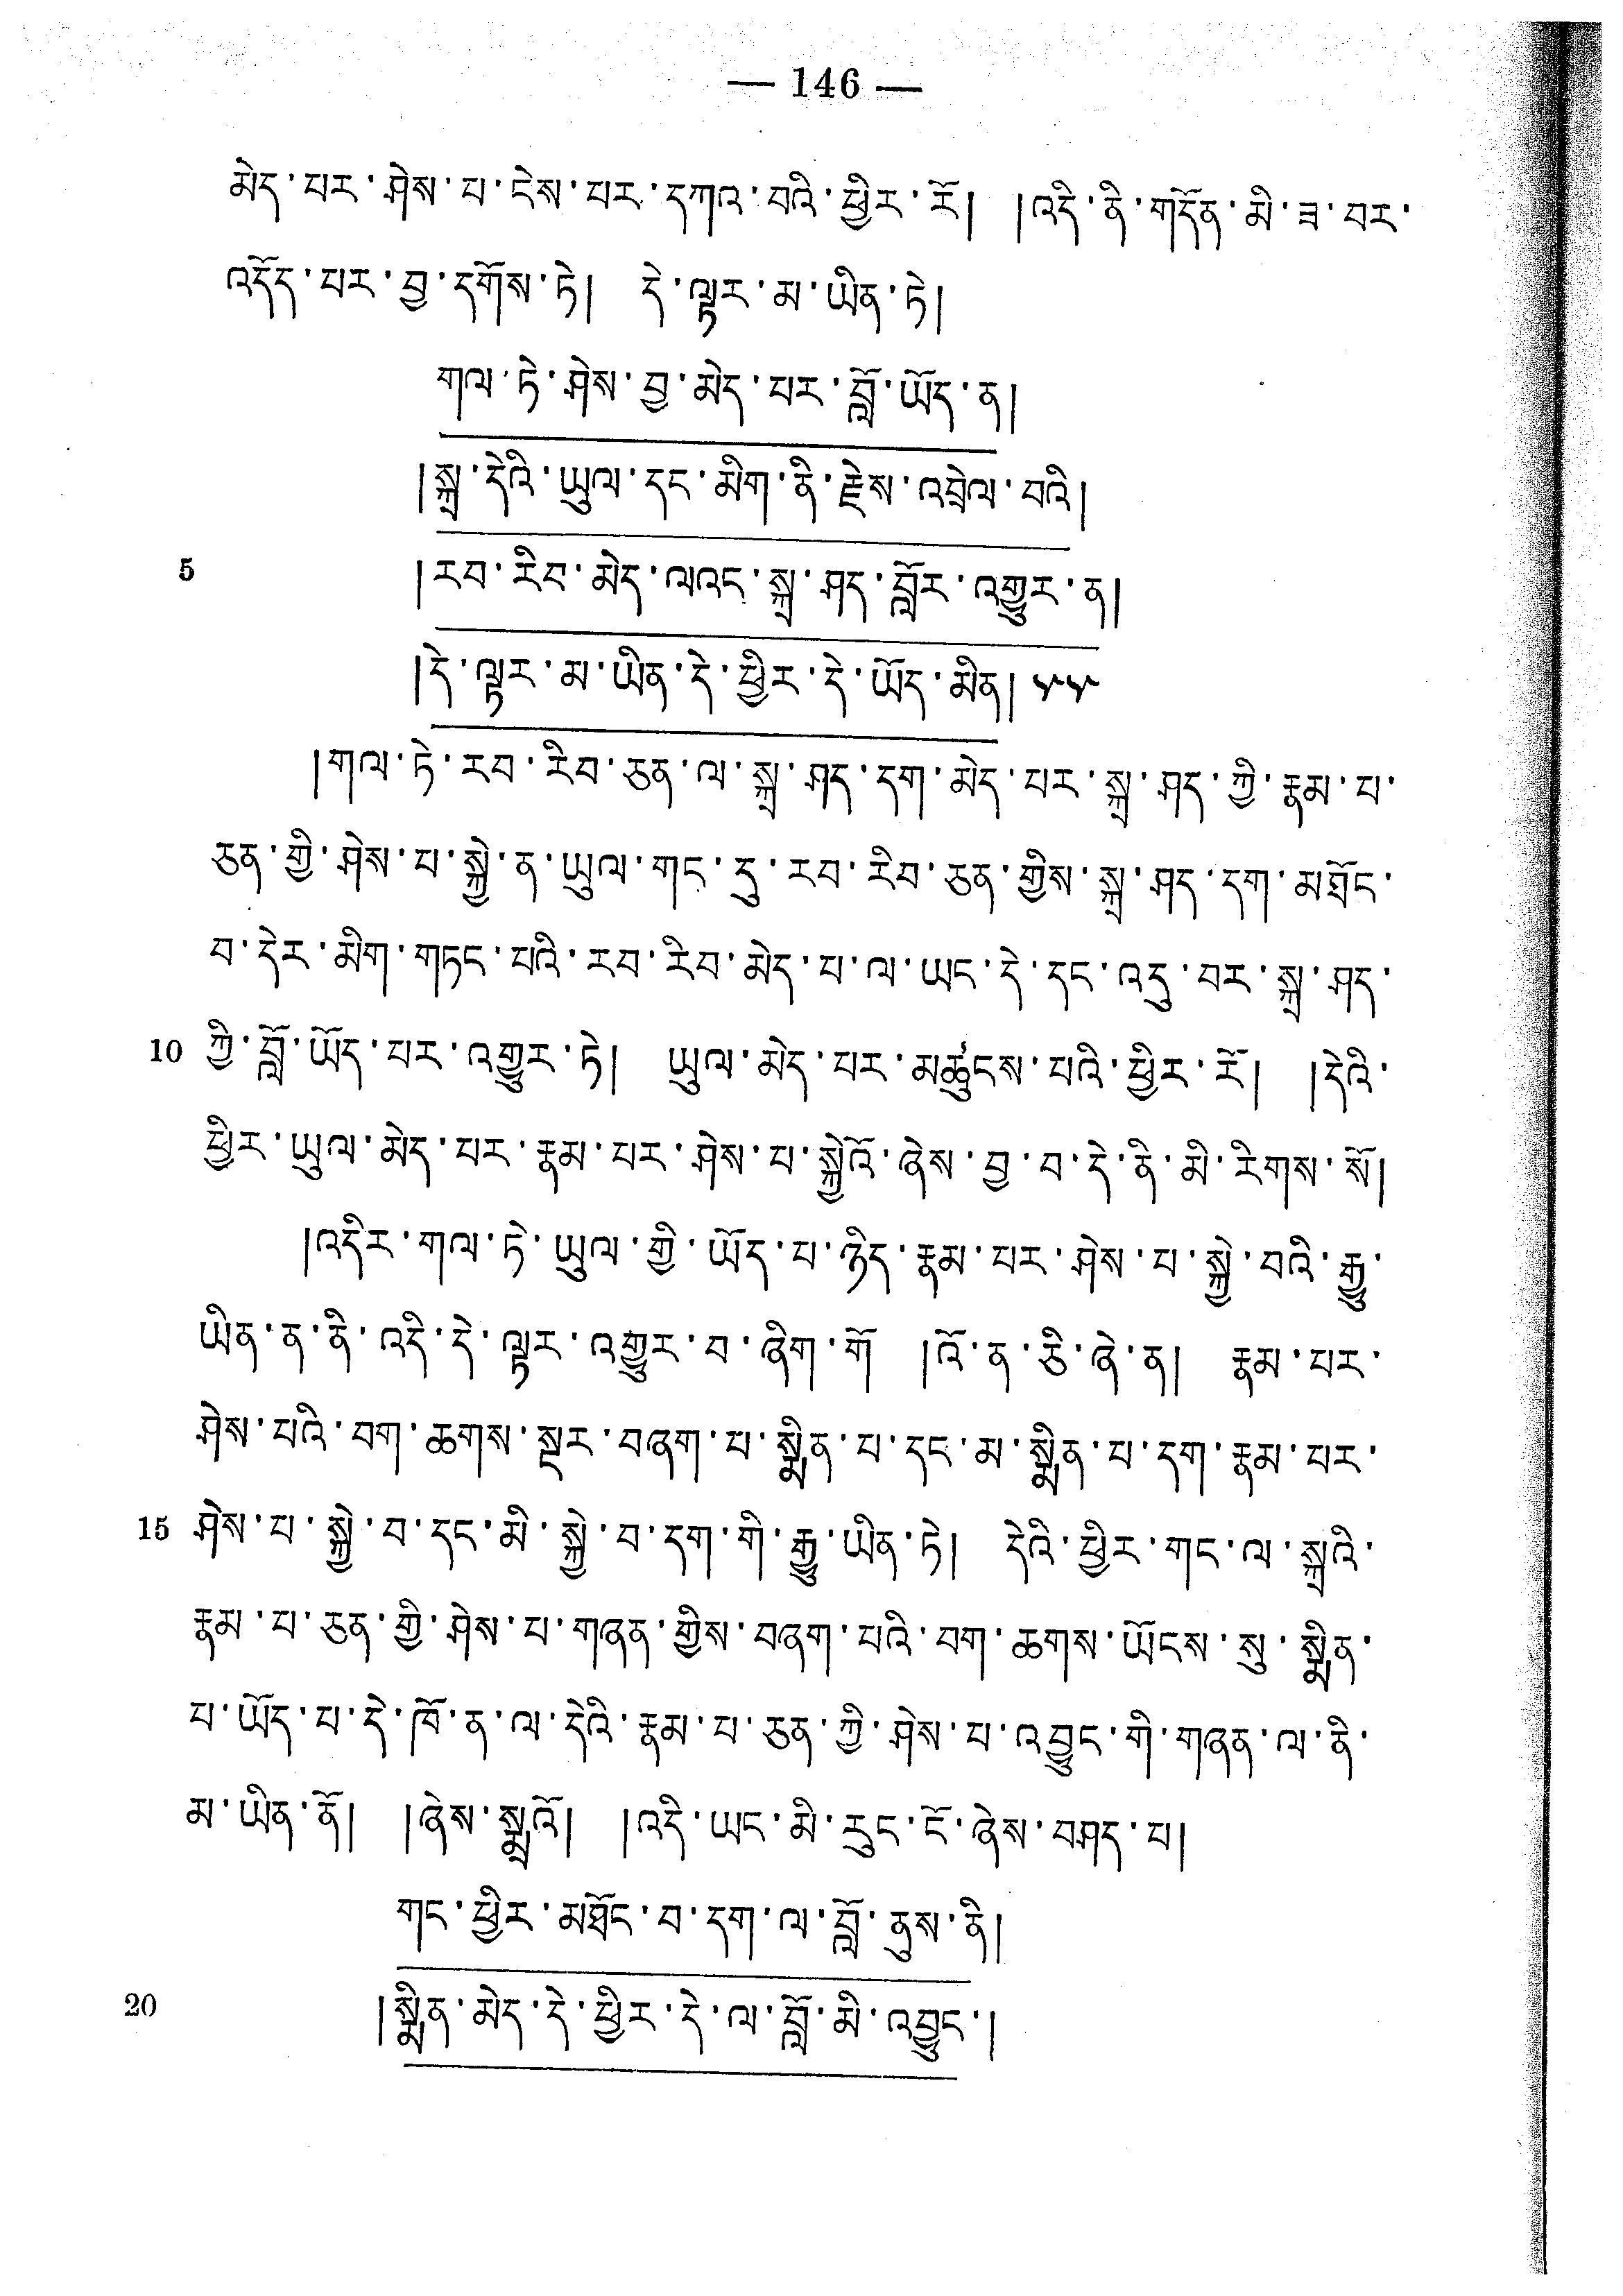 — 146 —
མེད་པར་ཤེས་པ་ངེས་པར་དཀའ་བའི་ཕྱིར་རོ། །འདི་ནི་གདོན་མི་ཟ་བར་
འདོད་པར་བྱ་དགོས་ཏེ། དེ་ལྟར་མ་ཡིན་ཏེ།
གལ་ཏེ་ཤེས་བྱ་མེད་པར་བློ་ཡོད་ན།
།སྐྲ་དེའི་ཡུལ་དང་མིག་ནི་རྗེས་འབྲེལ་བའི།
5 །རབ་རིབ་མེད་ལའང་སྐྲ་ཤད་བློར་འགྱུར་ན།
།དེ་ལྟར་མ་ཡིན་དེ་ཕྱིར་དེ་ཡོད་མིན། ༥༥
།གལ་ཏེ་རབ་རིབ་ཅན་ལ་སྐྲ་ཤད་དག་མེད་པར་སྐྲ་ཤད་ཀྱི་རྣམ་པ་
ཅན་གྱི་ཤེས་པ་སྐྱེ་ན་ཡུལ་གང་དུ་རབ་རིབ་ཅན་གྱིས་སྐྲ་ཤད་དག་མཐོང་
བ་དེར་མིག་གཏང་པའི་རབ་རིབ་མེད་པ་ལ་ཡང་དེ་དང་འདྲ་བར་སྐྲ་ཤད་
10 ཀྱི་བློ་ཡོད་པར་འགྱུར་ཏེ། ཡུལ་མེད་པར་མཚུངས་པའི་ཕྱིར་རོ། །དེའི་
ཕྱིར་ཡུལ་མེད་པར་རྣམ་པར་ཤེས་པ་སྐྱེའོ་ཞེས་བྱ་བ་དེ་ནི་མི་རིགས་སོ།
།འདིར་གལ་ཏེ་ཡུལ་གྱི་ཡོད་པ་ཉིད་རྣམ་པར་ཤེས་པ་སྐྱེ་བའི་རྒྱུ་
ཡིན་ན་ནི་འདི་དེ་ལྟར་འགྱུར་བ་ཞིག་གོ །འོ་ན་ཅི་ཞེ་ན། རྣམ་པར་
ཤེས་པའི་བག་ཆགས་སྔར་བཞག་པ་སྨིན་པ་དང་མ་སྨིན་པ་དག་རྣམ་པར་
15 ཤེས་པ་སྐྱེ་བ་དང་མི་སྐྱེ་བ་དག་གི་རྒྱུ་ཡིན་ཏེ། དེའི་ཕྱིར་གང་ལ་སྐྲའི་
རྣམ་པ་ཅན་གྱི་ཤེས་པ་གཞན་གྱིས་བཞག་པའི་བག་ཆགས་ཡོངས་སུ་སྨིན་
པ་ཡོད་པ་དེ་ཁོ་ན་ལ་དེའི་རྣམ་པ་ཅན་ཀྱི་ཤེས་པ་འབྱུང་གི་གཞན་ལ་ནི་
མ་ཡིན་ནོ། །ཞེས་སྨྲའོ། །འདི་ཡང་མི་རུང་ངོ་ཞེས་བཤད་པ།
གང་ཕྱིར་མཐོང་བ་དག་ལ་བློ་ནུས་ནི།
20 །སྨིན་མེད་དེ་ཕྱིར་དེ་ལ་བློ་མི་འབྱུང་།